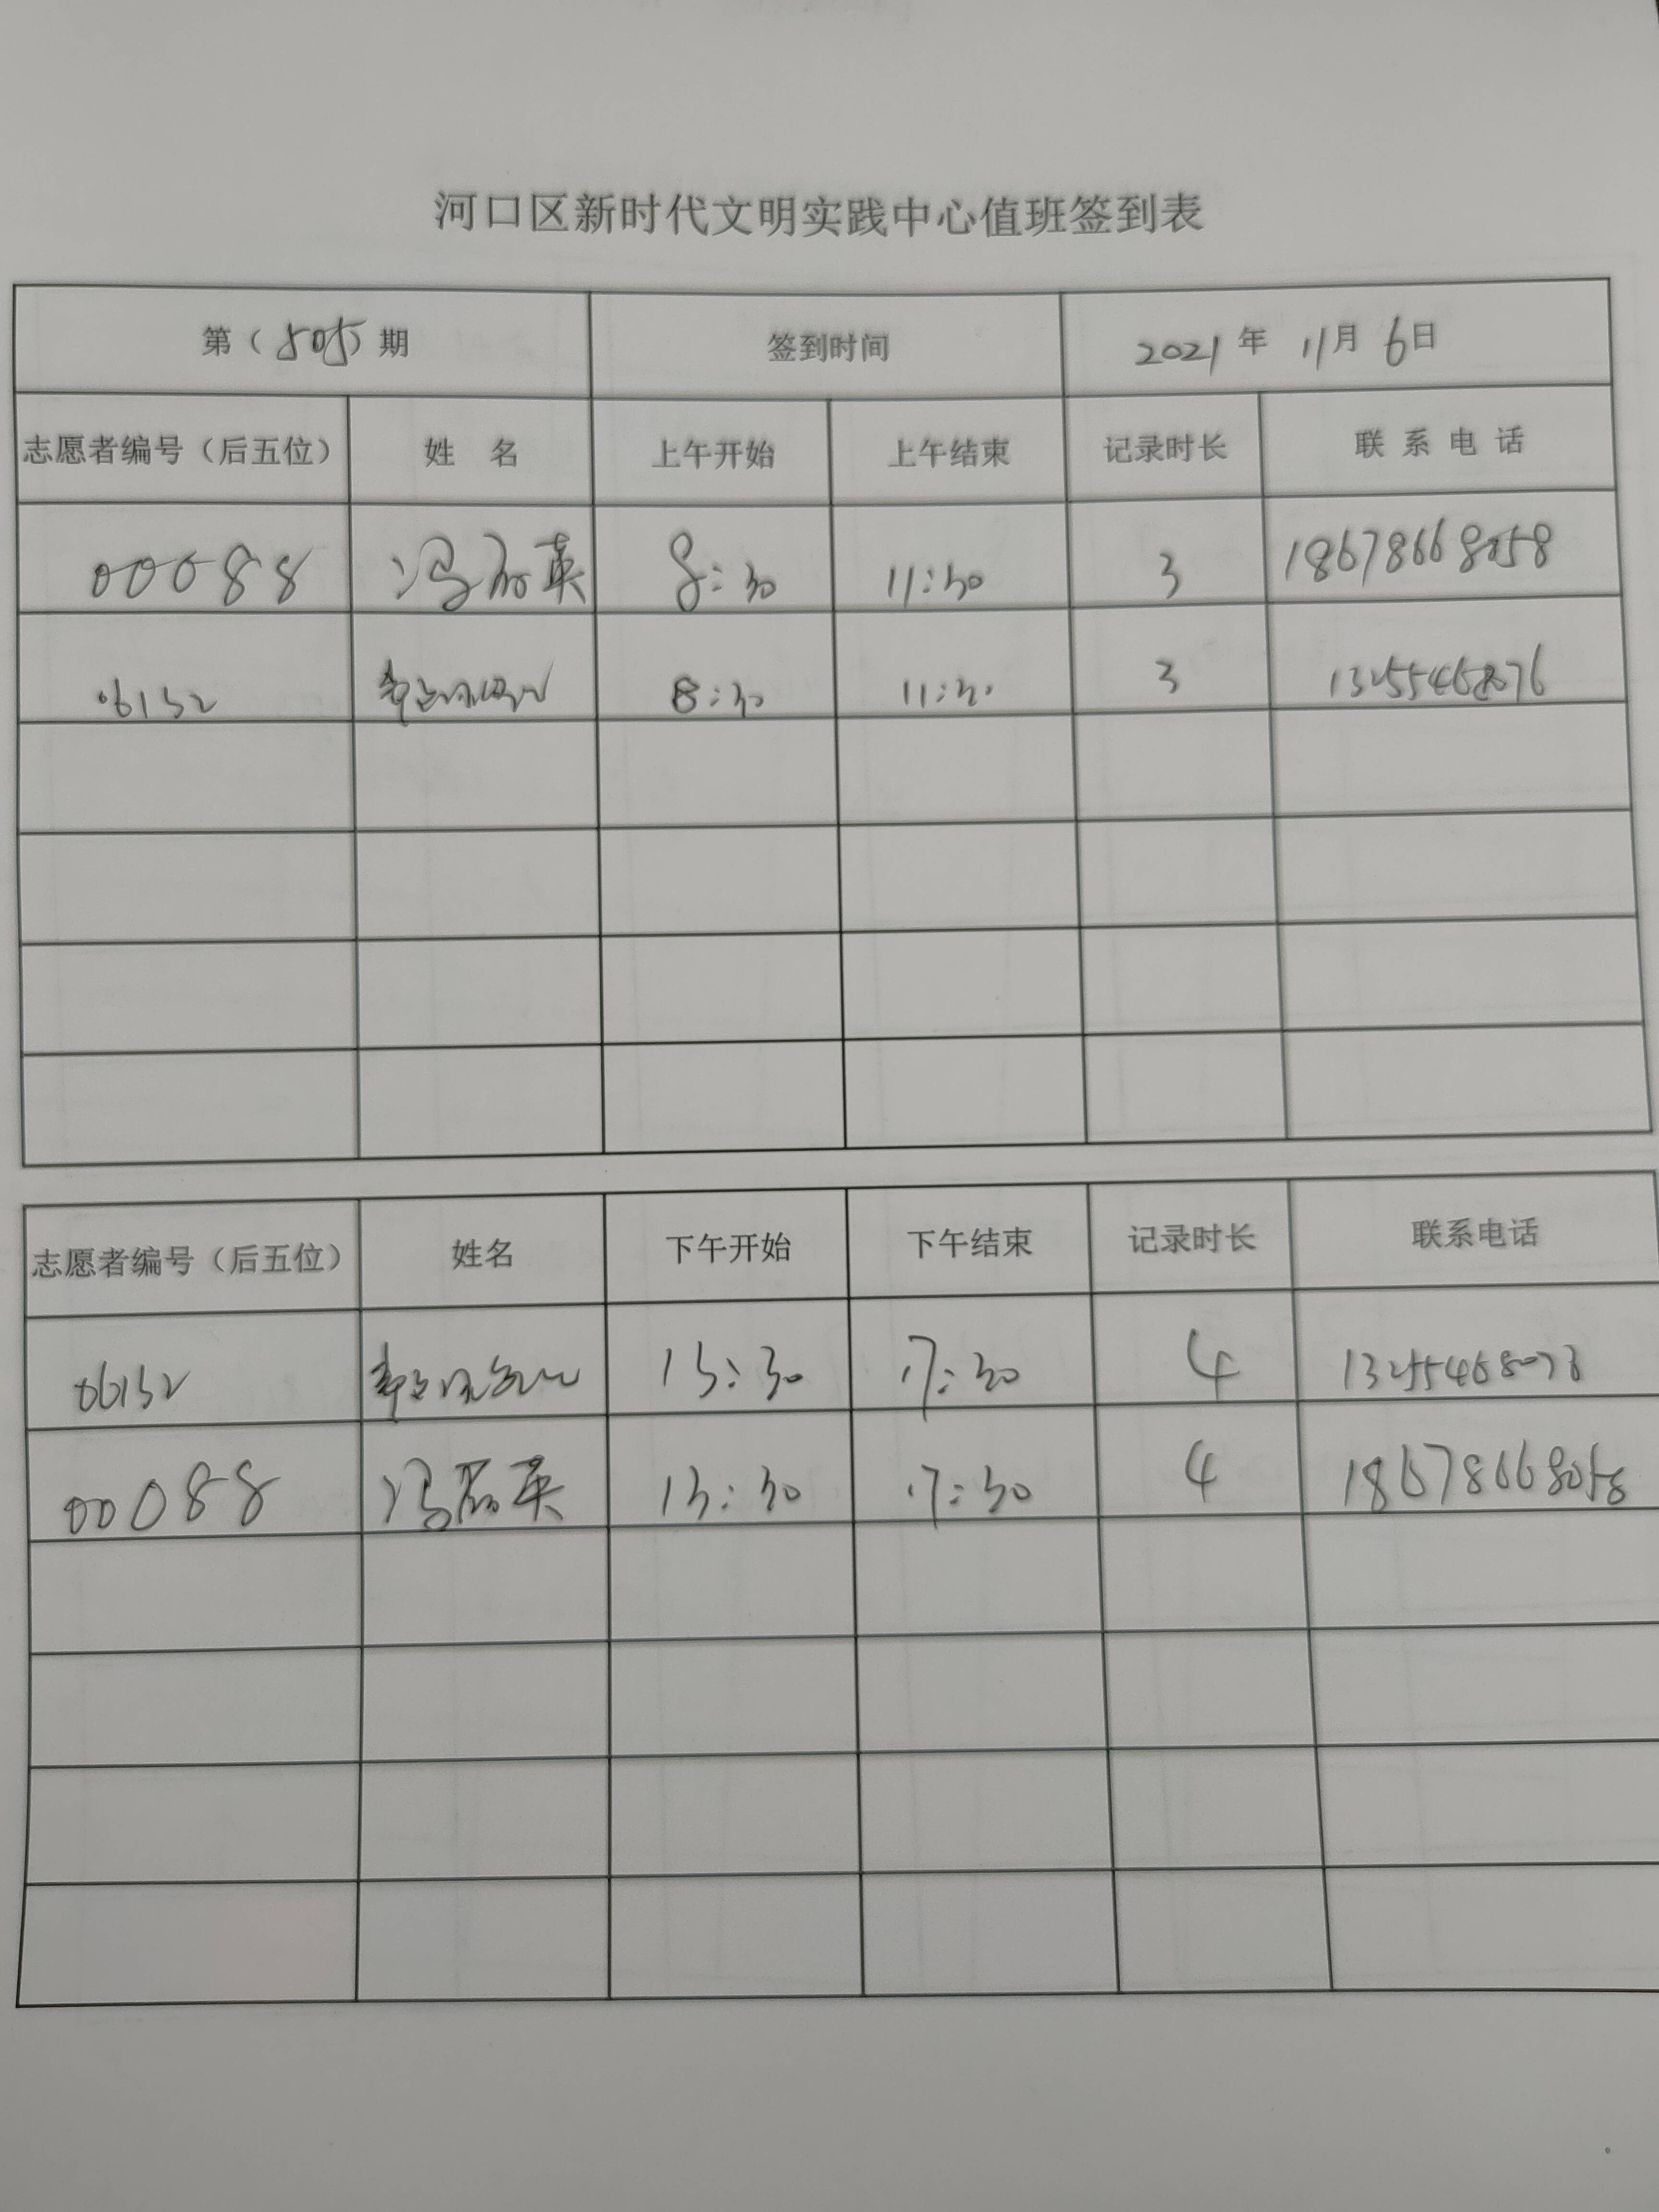 河口区新时代文明实践中心值班签到表
第（505）期 签到时间 2021年 11月 6日
志愿者编号（后五位） 姓 名 上午开始 上午结束 记录时长 联 系 电 话
00088 冯 英 8:30 11:30 3 18678668058
06132 8:30 11:30 3 13255468076
志愿者编号（后五位） 姓名 下午开始 下午结束 记录时长 联系电话
06132 13:30 17:30 4
00088 冯 英 13:30 17:30 4 18678668058